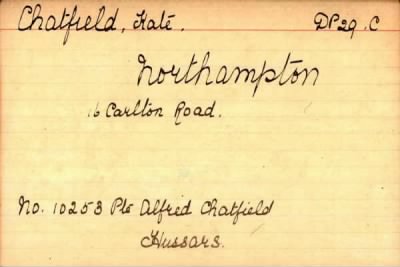 Chatfield, Kate. DP29.C
Northampton
16 Carlton Road.
No. 10253 Pte Alfred Chatfield
Hussars.